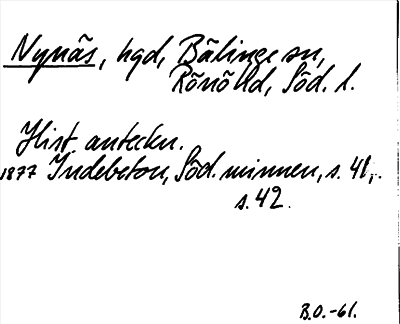 Nynäs, hgd, Bälinge sn,
Rönö hd, Söd. l.
Hist. anteckn.
1877 Indebetou, Söd. minnen, s. 41,.
s. 42.
B.O.-61.